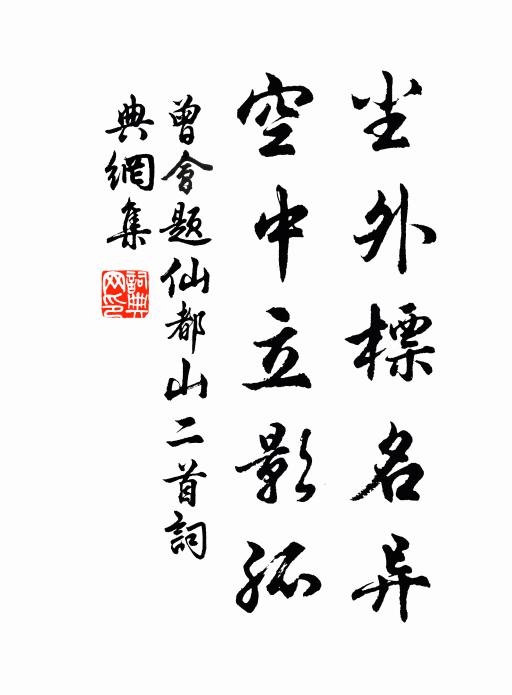 尘外標名异
空中立影孤
曾會題仙都山二首詞
典網集
詞典網印